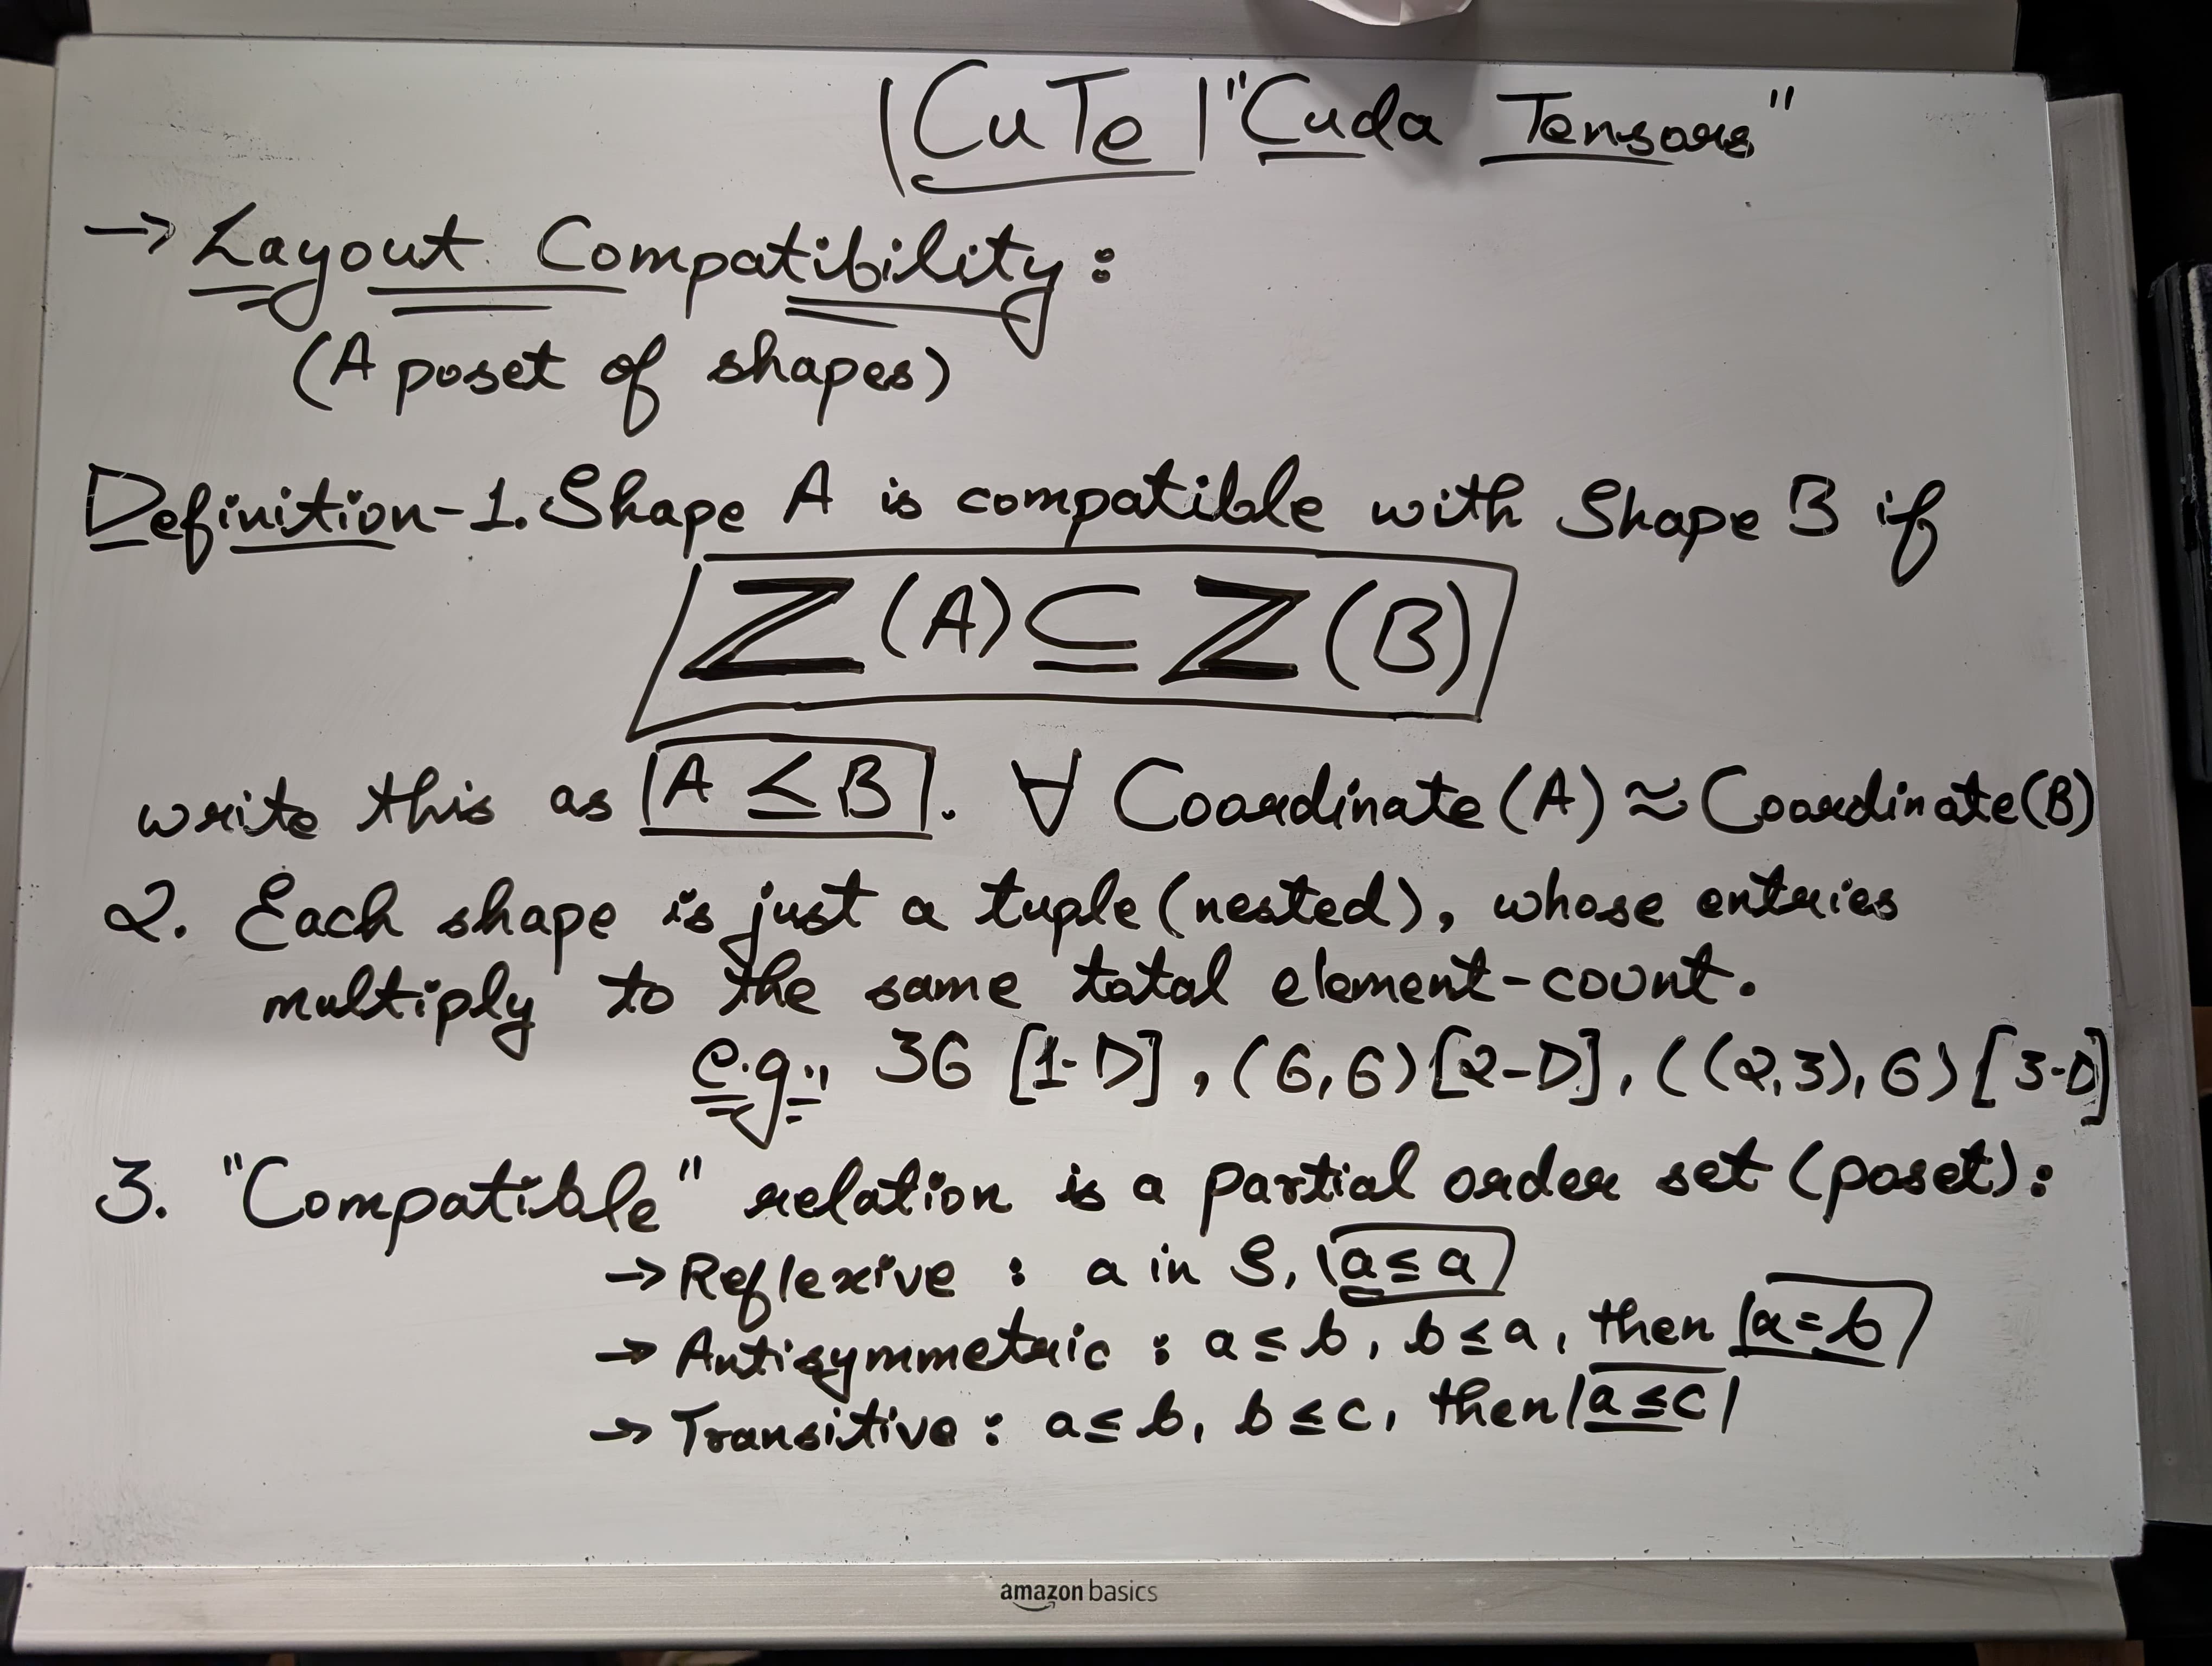 |CuTe| "Cuda Tensors"
→ Layout Compatibility:
(A poset of shapes)
Definition-1. Shape A is compatible with Shape B if
ℤ(A) ⊆ ℤ(B)
write this as |A ≤ B|. ∀ Coordinate(A) ≈ Coordinate(B)
2. Each shape is just a tuple (nested), whose entries
multiply to the same total element-count.
e.g., 36 [1-D], (6,6) [2-D], ((2,3),6) [3-D]
3. "Compatible" relation is a partial order set (poset):
→ Reflexive : a in S, (a ≤ a)
→ Antisymmetric : a ≤ b, b ≤ a, then |a = b|
→ Transitive : a ≤ b, b ≤ c, then |a ≤ c|
amazon basics